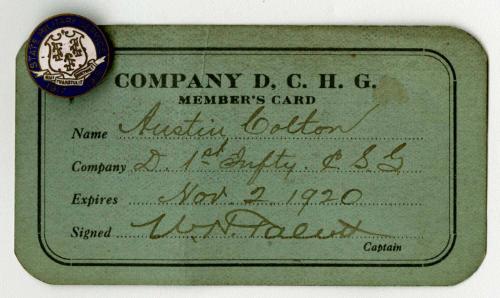 STATE MILITARY SERVICE
QUI TRANSTULIT SUSTINET
1917
COMPANY D, C. H. G.
MEMBER'S CARD
Name Austin Colton
Company D. 1st Infty. C S G
Expires Nov. 2 1920
Signed W.H. Talcott
Captain